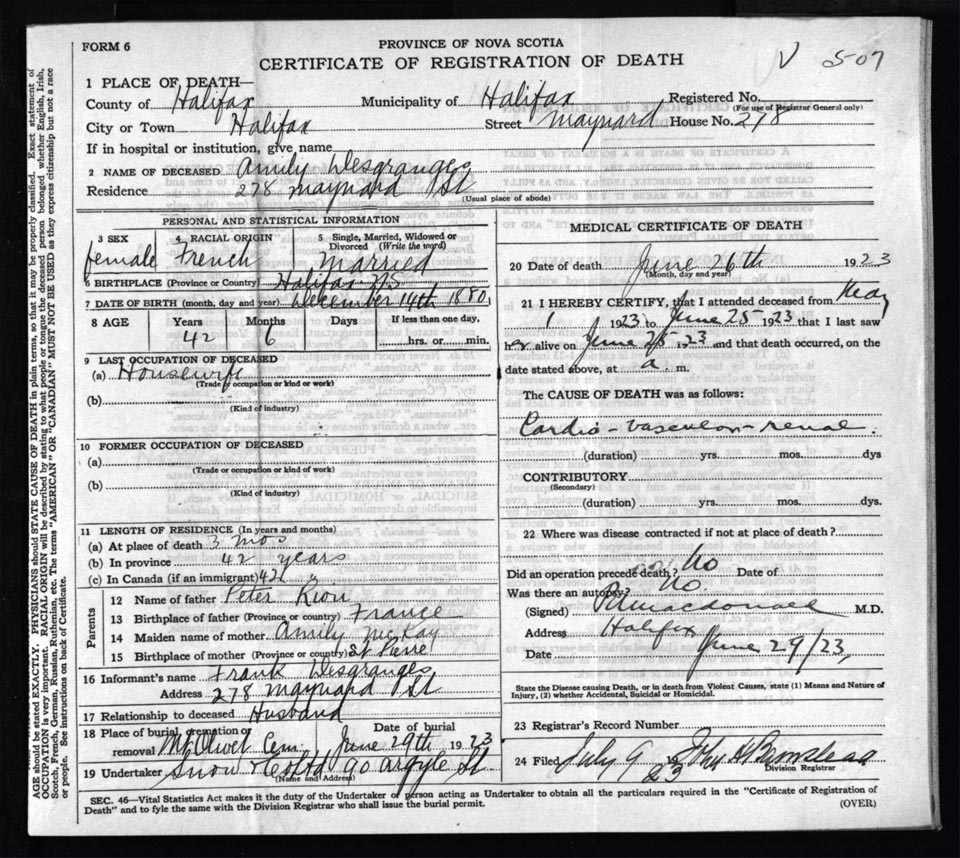 FORM 6
PROVINCE OF NOVA SCOTIA
CERTIFICATE OF REGISTRATION OF DEATH
V 507
1 PLACE OF DEATH—
County of Halifax Municipality of Halifax Registered No.
(For use of Registrar General only)
City or Town Halifax Street Maynard House No. 278
If in hospital or institution, give name
2 NAME OF DECEASED Amily Desgranges
Residence 278 Maynard St
(Usual place of abode)
PERSONAL AND STATISTICAL INFORMATION
3 SEX 4 RACIAL ORIGIN 5 Single, Married, Widowed or Divorced (Write the word)
female French Married
6 BIRTHPLACE (Province or Country) Halifax N.S.
7 DATE OF BIRTH (month, day and year) December 14th 1880
8 AGE Years Months Days If less than one day,
42 6 hrs. or min.
9 LAST OCCUPATION OF DECEASED
(a) Housewife
(Trade or occupation or kind or work)
(b)
(Kind of industry)
10 FORMER OCCUPATION OF DECEASED
(a)
(Trade or occupation or kind or work)
(b)
(Kind of industry)
11 LENGTH OF RESIDENCE (In years and months)
(a) At place of death 3 mos
(b) In province 42 years
(c) In Canada (if an immigrant) 42
Parents
12 Name of father Peter
13 Birthplace of father (Province or country) France
14 Maiden name of mother Amily McKay
15 Birthplace of mother (Province or country) St Pierre
16 Informant's name Frank Desgranges
Address 278 Maynard St
17 Relationship to deceased Husband
18 Place of burial, cremation or removal Mt Olivet Cem. Date of burial June 29th 1923
19 Undertaker Snow & Co Ltd 90 Argyle St
(Name and Address)
MEDICAL CERTIFICATE OF DEATH
20 Date of death June 26th 1923
(Month, day and year)
21 I HEREBY CERTIFY, that I attended deceased from May
1 1923 to June 25 1923 that I last saw
er alive on June 25 1923 and that death occurred, on the
date stated above, at a. m.
The CAUSE OF DEATH was as follows:
Cardio-vascular-renal.
(duration) yrs. mos. dys
CONTRIBUTORY
(Secondary)
(duration) yrs. mos. dys.
22 Where was disease contracted if not at place of death?
Did an operation precede death? No Date of
Was there an autopsy? No.
(Signed) Macdonald M.D.
Address Halifax
Date June 29/23
State the Disease causing Death, or in death from Violent Causes, state (1) Means and Nature of
Injury, (2) whether Accidental, Suicidal or Homicidal.
23 Registrar's Record Number
24 Filed July 9 1923 John
Division Registrar
SEC. 46—Vital Statistics Act makes it the duty of the Undertaker or person acting as Undertaker to obtain all the particulars required in the "Certificate of Registration of
Death" and to fyle the same with the Division Registrar who shall issue the burial permit.
(OVER)
AGE should be stated EXACTLY. PHYSICIANS should STATE CAUSE OF DEATH in plain terms, so that it may be properly classified. Exact statement of
OCCUPATION is very important. RACIAL ORIGIN will be described by stating to what people or tongue the deceased person belonged whether English, Irish,
Scotch, French, German, Russian, Ruthenian, etc. The terms "AMERICAN" OR "CANADIAN" MUST NOT BE USED as they express citizenship but not a race
or people. See instructions on back of Certificate.